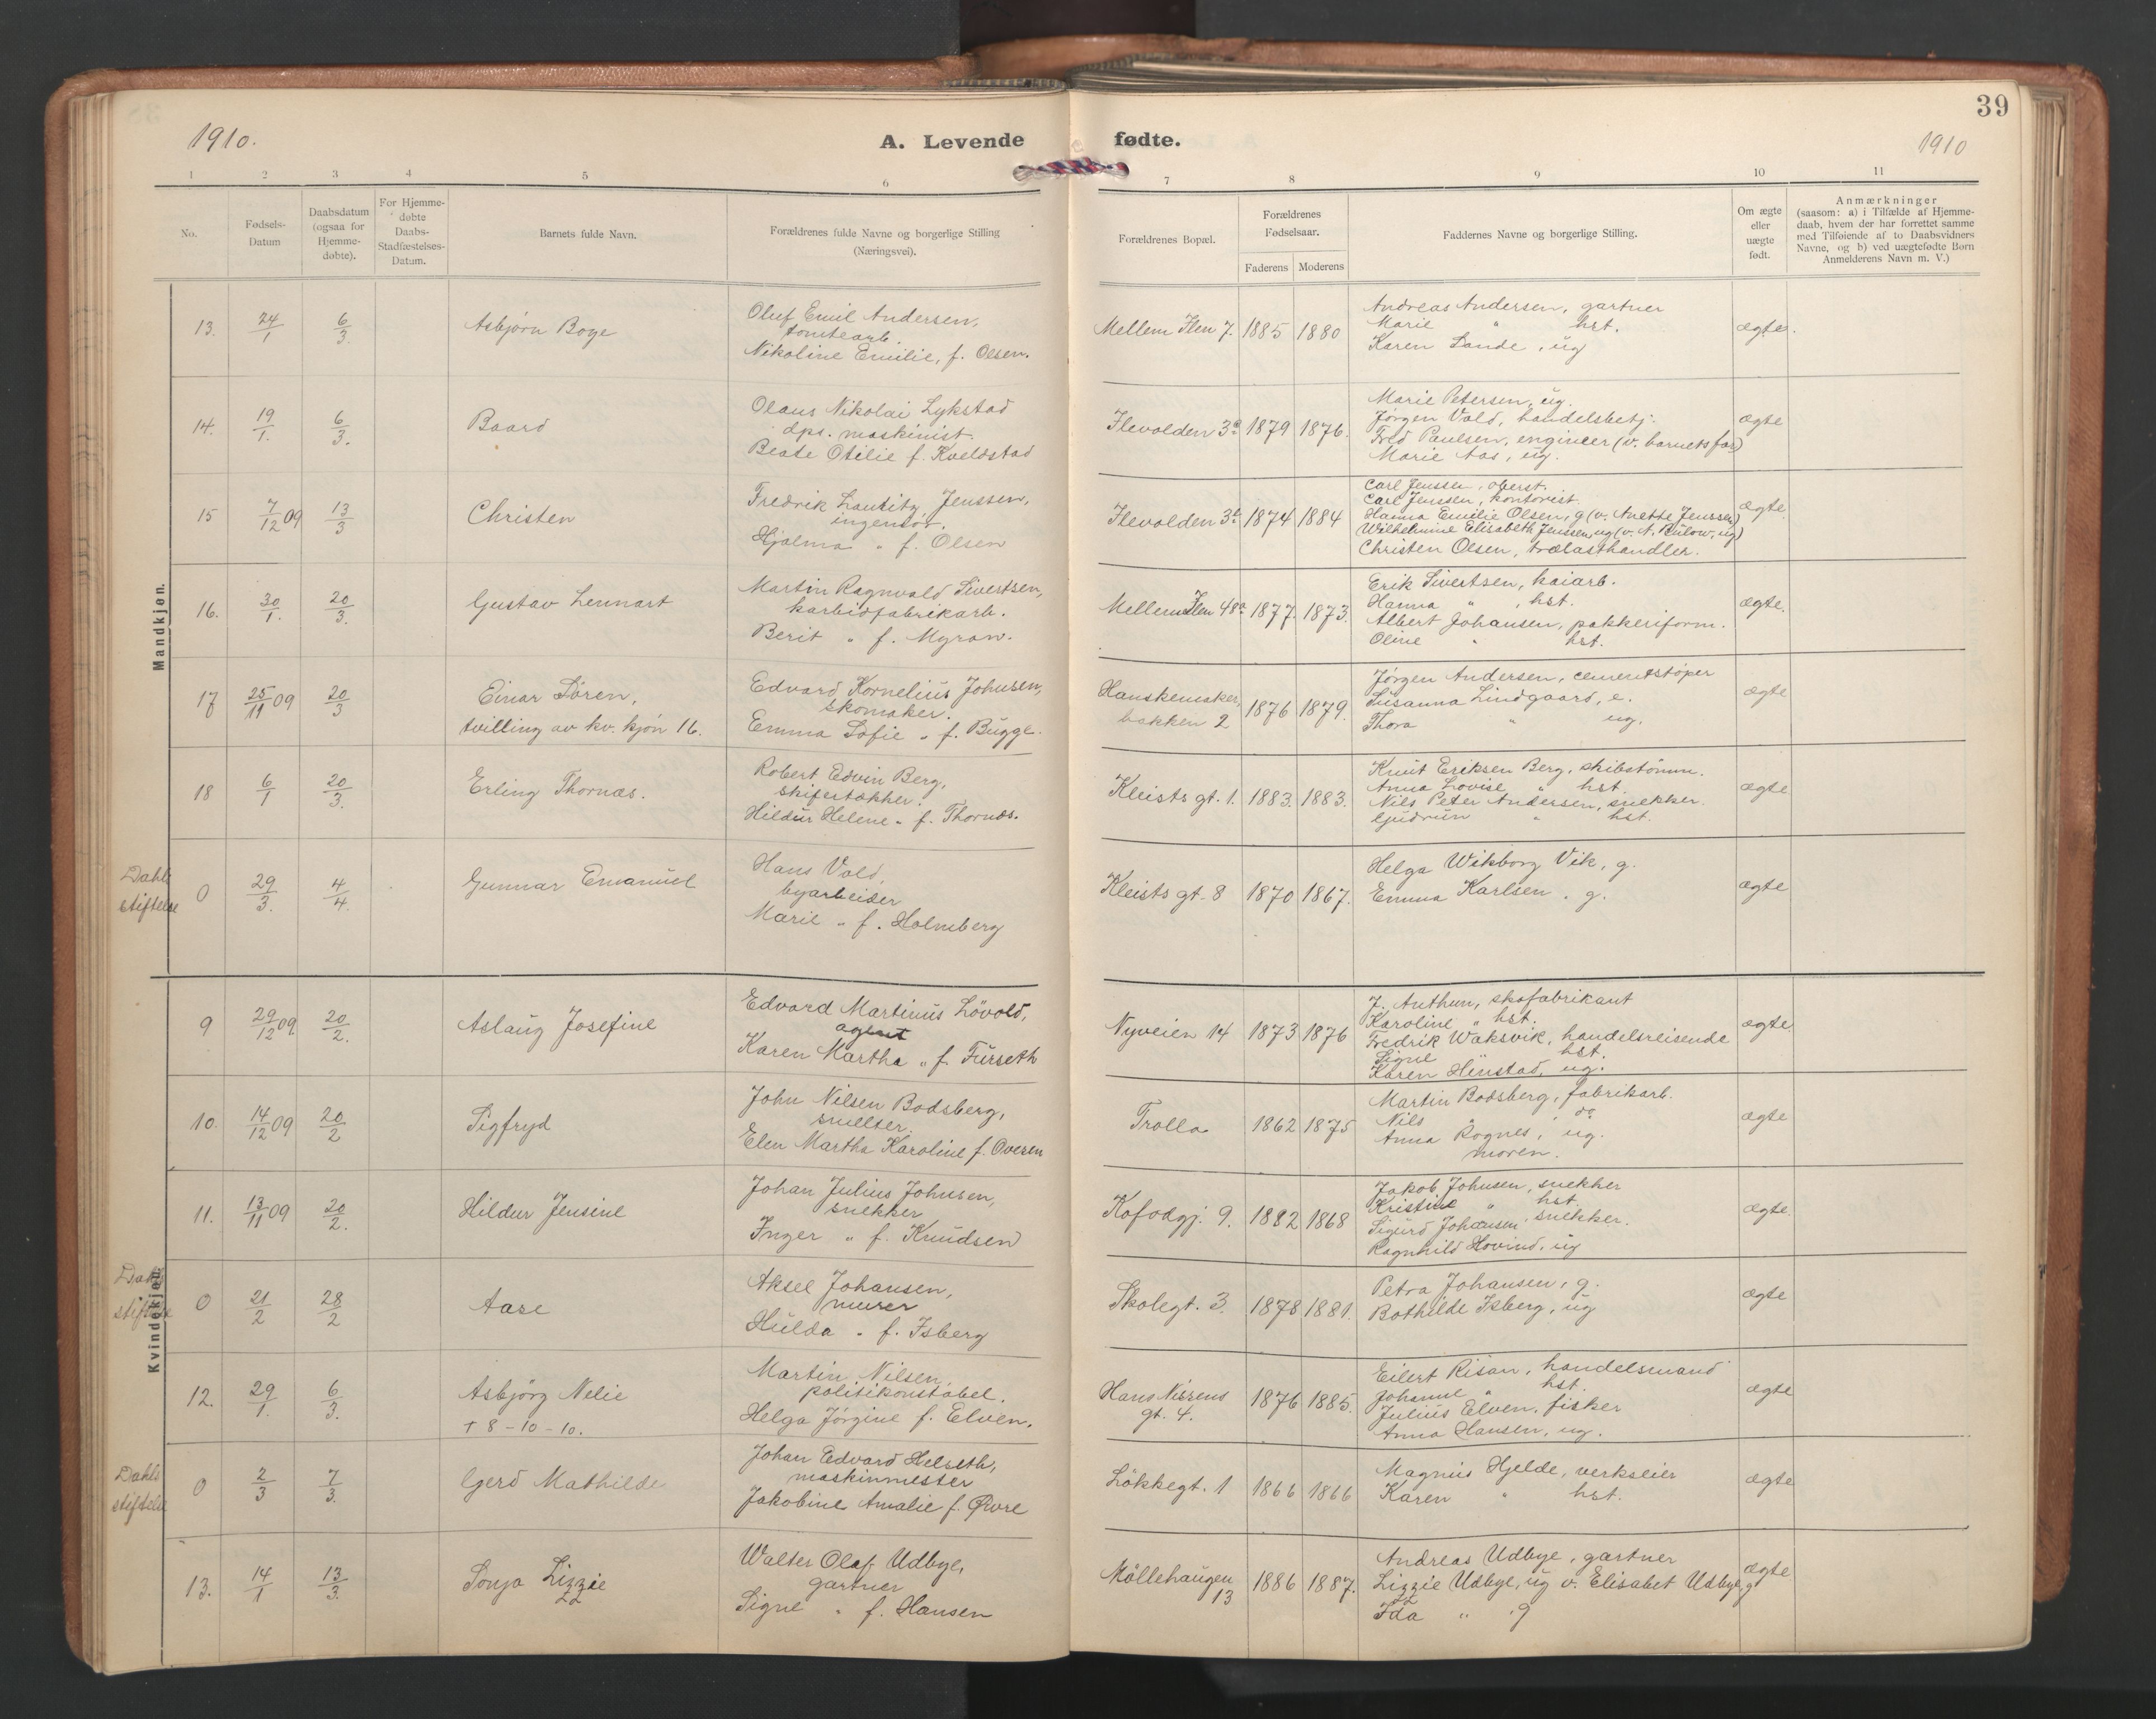 39
1910.
A. Levende fødte.
1910
1 2 3 4 5 6 7 8 9 10 11
No.
Fødsels-
Datum
Daabsdatum
(ogsaa for
Hjemme-
døbte).
For Hjemme-
døbte
Daabs-
Stadfæstelses-
Datum.
Barnets fulde Navn.
Forældrenes fulde Navne og borgerlige Stilling
(Næringsvei).
Forældrenes Bopæl.
Forældrenes
Fødselsaar.
Faderens Moderens
Faddernes Navne og borgerlige Stilling.
Om ægte
eller
uægte
født.
Anmærkninger
(saasom: a) i Tilfælde af Hjemme-
daab, hvem der har forrettet samme
med Tilføiende af to Daabsvidners
Navne, og b) ved uægtefødte Børn
Anmelderens Navn m. V.)
Mandkjøn.
13. 24/1 6/3 Asbjørn Boye
Oluf Emil Andersen,
tomtearb.
Nikoline Emilie, f. Olsen.
Mellem Ilen 7. 1885 1880
Andreas Andersen, gartner
Marie " hst.
Karen Lande, ug
ægte.
14. 19/1. 6/3. Baard
Olaus Nikolai Lykstad
dps. maskinist.
Beate Otilie f. Kveldstad
Ilevolden 3a 1879 1876.
Marie Petersen, ug.
Jørgen Vald, handelsbetj.
Fred Paulsen, engineer (v. barnets far)
Marie Aas, ug.
ægte
15 7/12 09 13/3 Christen
Fredrik Lauritz Jenssen,
ingeniør.
Hjalma " f. Olsen
Ilevolden 3b 1874 1884
Carl Jenssen, oberst.
Carl Jenssen, kontorist.
Hanna Emilie Olsen, g (v. Anette Jenssen)
Wilhelmine Elisabeth Jenssen, ug (v. A. Bülow, ug)
Christen Olsen, trælasthandler.
ægte.
16. 30/1. 20/3. Gustav Lennart
Martin Ragnvald Sivertsen,
karbidfabrikarb.
Berit " f. Myran.
Mellem Ilen 48a 1877. 1873.
Erik Sivertsen, kaiarb.
Hanna " , hst.
Albert Johansen, pakkeriform.
Oline " hst.
ægte.
17 25/11 09 20/3 Einar Søren,
tvilling av kv. kjön 16.
Edvard Kornelius Johnsen,
skomaker.
Emma Sofie " f. Bugge.
Hanskemaker,
bakken 2 1876 1879.
Jørgen Andersen, cementstøper
Susanna Lindgaard, e.
Thora " ug.
ægte
18 6/1 20/3. Erling Thornæs.
Robert Edvin Berg,
skifertækker.
Hildur Helene " f. Thornæs.
Kleists gt. 1. 1883. 1883.
Knut Eriksen Berg, skibstömm.
Anna Lovise " hst.
Nils Peter Andersen, snekker.
Gudrun " hst.
ægte
Dahls
stiftelse
0 29/3. 4/4. Gunnar Emanuel
Hans Vold,
byarbeider
Marie " f. Holmberg
Kleists gt. 8 1870 1867.
Helga Wikborg Vik, g.
Emma Karlsen, g.
ægte
Kvindekjøn.
9 29/12 09 20/2. Aslaug Josefine
Edvard Martinus Lövold,
agent
Karen Martha " f. Furseth
Nyveien 14 1873 1876
J. Anthun, skofabrikant
Karoline " hst.
Fredrik Waksvik, handelsreisende
Signe " hst.
Karen Hinstad, ug.
ægte.
10. 14/12 09 20/2 Sigfryd
John Nilsen Bodsberg,
smelter.
Elen Martha Karoline f. Ovesen
Trolla 1862 1875
Martin Bodsberg, fabrikarb.
Nils " , do
Anna Rognes, ug.
moren.
ægte
11. 13/11 09 20/2. Hildur Jensine
Johan Julius Johnsen,
snekker
Inger " f. Knudsen
Kofodgj. 9. 1882 1868
Jakob Johnsen, snekker
Kristine " hst.
Sigurd Johansen snekker.
Ragnhild Hovind, ug
ægte.
Dahls
stiftelse
0 21/2 28/2 Aase
Aksel Johansen,
murer
Hulda " f. Isberg
Skolegt. 3. 1878 1881.
Petra Johansen, g.
Bothilde Isberg, ug
ægte
12. 29/1. 6/3. Asbjörg Nelie
† 8-10-10.
Martin Nilsen,
politikonstabel.
Helga Jörgine f. Elven.
Hans Nissens
gt. 4. 1876 1885.
Eilert Risan, handelsmand
Johanne " hst.
Julius Elven, fisker
Anna Hansen, ug.
ægte
Dahls
stiftelse
0 2/3 7/3. Gerd Mathilde
Johan Edvard Helseth,
maskinmester
Jakobine Amalie f. Øvre
Lökkegt. 1 1866 1866
Magnus Hjelde, verkseier
Karen " hst.
ægte
13. 14/1 13/3 Sonja Lizzie
Walter Olaf Udbye,
gartner
Signe " f. Hansen
Möllehaugen
13 1886 1887.
Andreas Udbye, gartner
Lizzie Udbye, ug v. Elisabet Udbye, g
Ida " , g
ægte